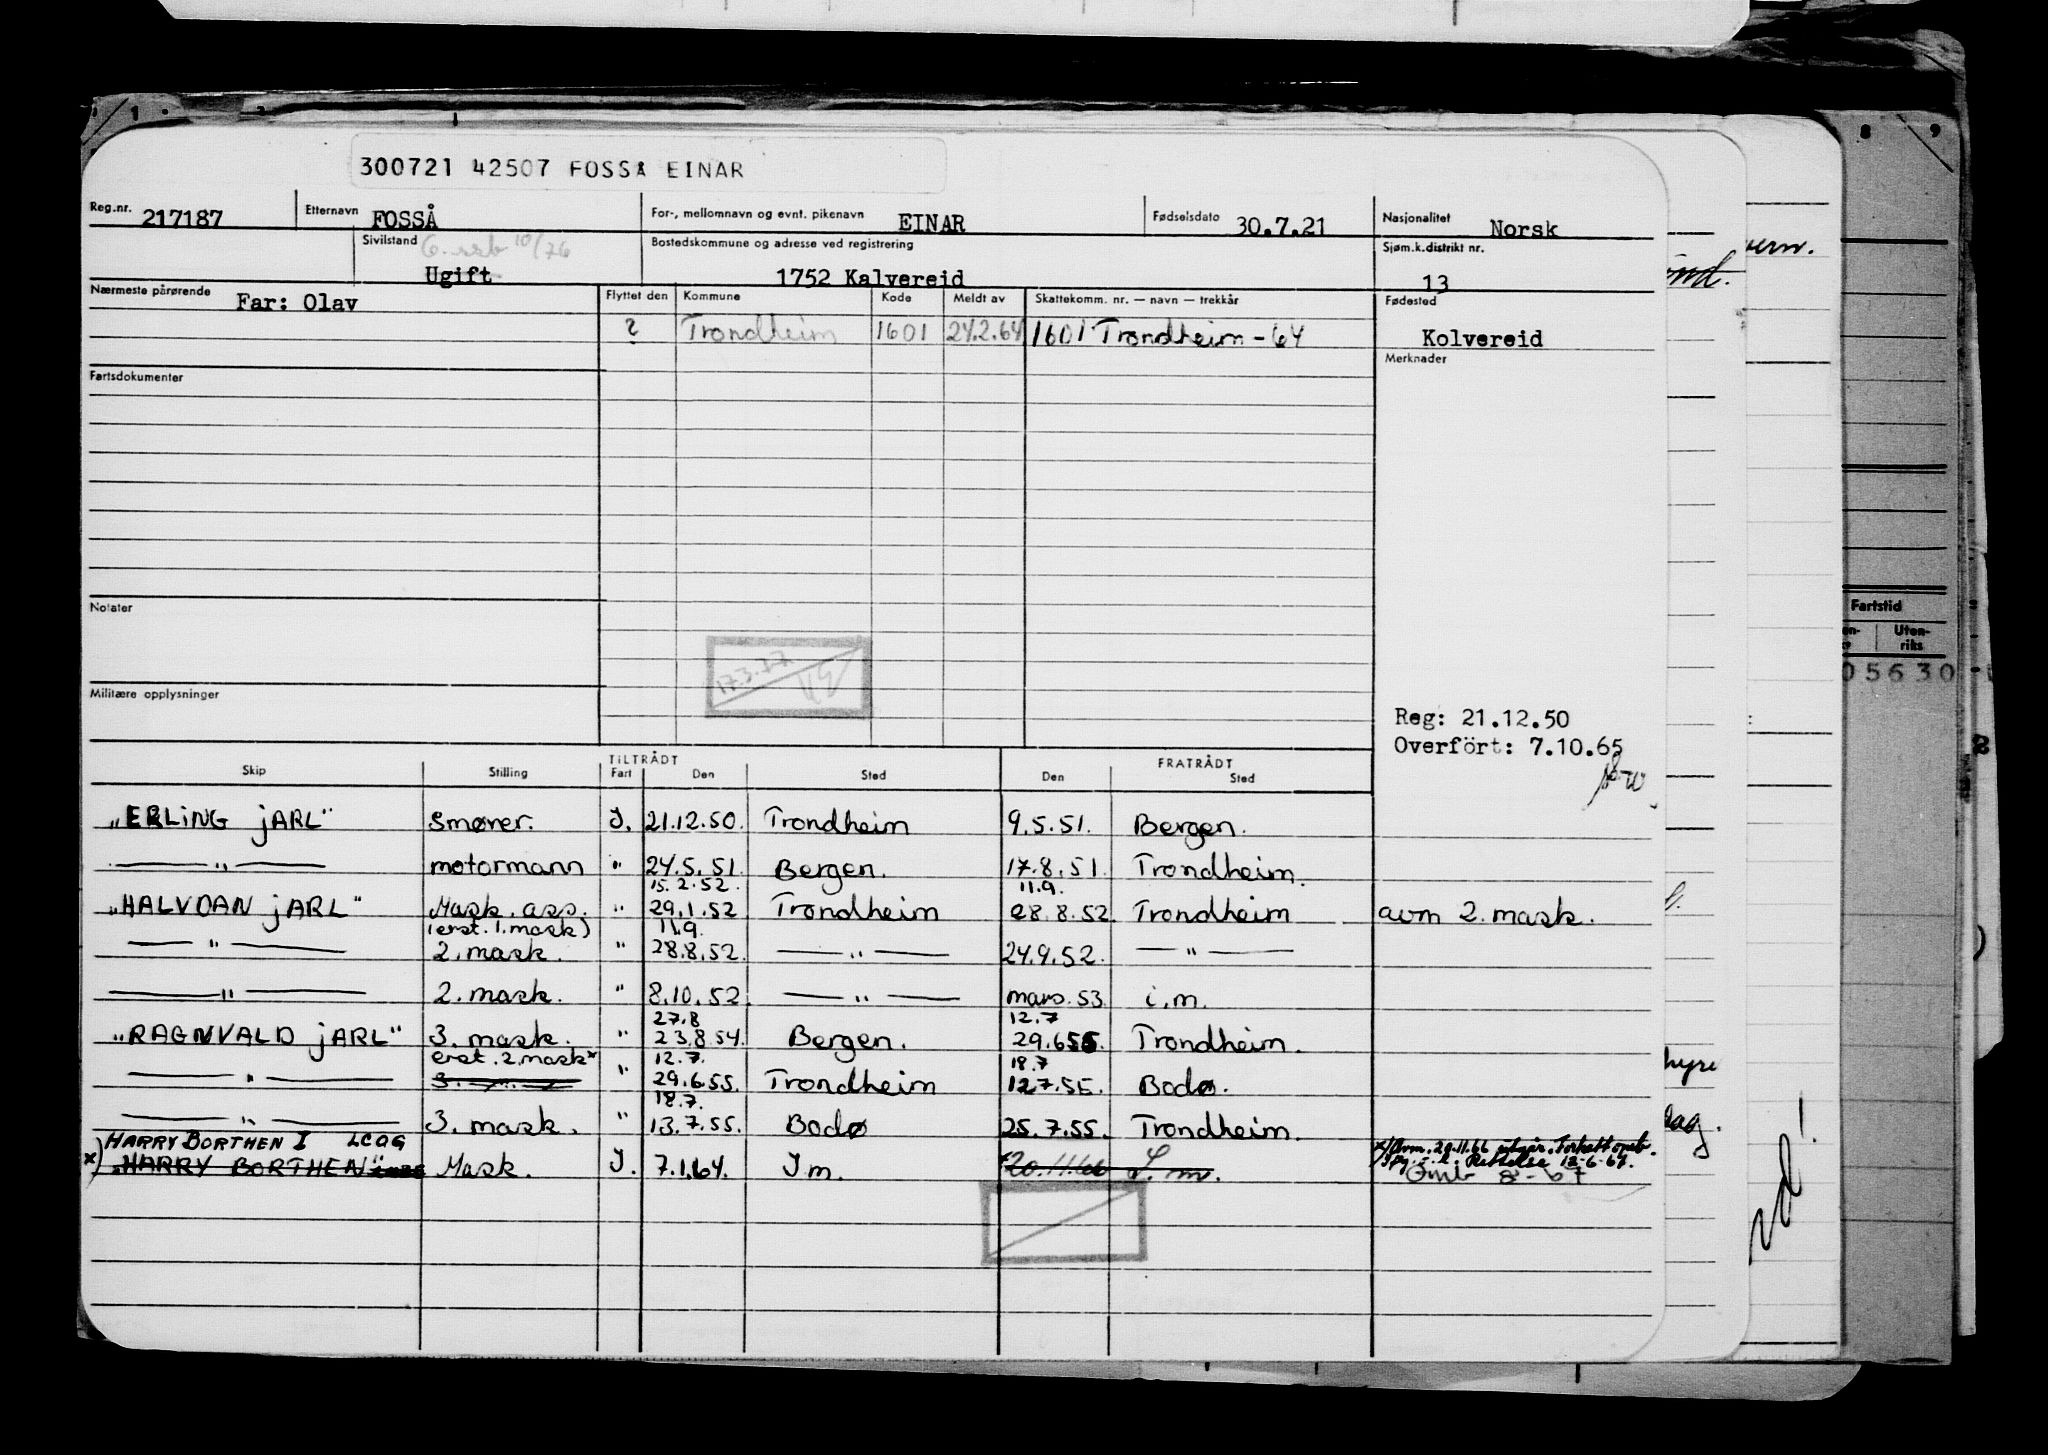 300721 42507 FOSSÅ EINAR
Reg.nr. 217187 Etternavn FOSSÅ For-, mellomnavn og evnt. pikenavn EINAR Fødselsdato 30.7.21 Nasjonalitet Norsk
Sivilstand Ugift Bostedskommune og adresse ved registrering 1752 Kalvereid Sjøm.k.distrikt nr. 13
Nærmeste pårørende Far: Olav Flyttet den Kommune Kode Meldt av Skattekomm. nr. — navn — trekkår Fødested
? Trondheim 1601 24.2.64 1601 Trondheim - 64 Kolvereid
Merknader
Fartsdokumenter
Notater
17.3.77
Militære opplysninger
Reg: 21.12.50
Overfört: 7.10.65
TILTRÅDT FRATRÅDT
Skip Stilling Fart Den Sted Den Sted
"ERLING JARL" Smører. J. 21.12.50. Trondheim 9.5.51. Bergen.
— " — motormann " 24.5.51. Bergen. 17.8.51. Trondheim.
15.2.52. 11.9.
"HALVDAN JARL" Mask. ass. " 29.1.52 Trondheim 28.8.52 Trondheim avm 2. mask.
(erst. 1. mask) 11.9.
— " — 2. mask. " 28.8.52. — " — 24.9.52. — " —
— " — 2. mask. " 8.10.52. — " — mars. 53. i.m.
27.8 12.7
"RAGNVALD JARL" 3. mask. " 23.8.54. Bergen. 29.6.55. Trondheim.
erst. 2. mask" 12.7. 18.7
— " — " 29.6.55. Trondheim 12.7.55. Bodø.
18.7.
— " — 3. mask. " 13.7.55. Bodø 25.7.55. Trondheim.
HARRY BORTHEN I LCOG
x) "HARRY BORTHEN" Mask. J. 7.1.64. I m. 20.11.66 I. m.
x) Avm. 20.11.66 utgår. Fortsatt omb.
Rettelse 12-6-67.
Omb 8-67
Fartstid
Uten-
riks
05630